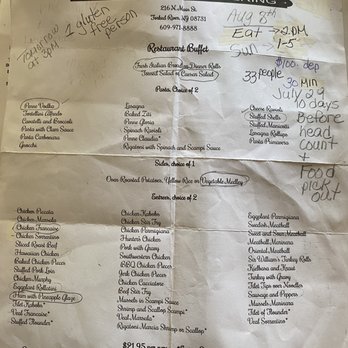 216 N. Main St.
Forked River, NJ 08731
609-971-8888
Tomorrow at 3PM
1 gluten free person
Aug 8th
Eat → 2PM
Sun → 1-5
$100. dep
33 people
30 Min
July 29
10 days Before head count + Food pick out
Restaurant Buffet
Fresh Italian Bread or Dinner Rolls
Tossed Salad or Caesar Salad
Pasta, Choice of 2
Penne Vodka
Tortellini Alfredo
Cavatelli and Broccoli
Pasta with Clam Sauce
Pasta Carbonara
Gnocchi
Lasagna
Baked Ziti
Penne Gloria
Spinach Ravioli
Penne Claudio*
Rigatoni with Spinach and Scampi Sauce
Cheese Ravioli
Stuffed Shells
Stuffed Manicotti
Lasagna Rollups
Pasta Primavera
Sides, choice of 1
Oven Roasted Potatoes, Yellow Rice or Vegetable Medley
Entrees, choice of 2
Chicken Piccata
Chicken Marsala
Chicken Francaise
Chicken Sorrentino
Sliced Roast Beef
Hawaiian Chicken
Baked Chicken Pieces
Stuffed Pork Loin
Chicken Murphy
Eggplant Rollatini
Ham with Pineapple Glaze
Tilapia Kabobs*
Veal Francaise*
Stuffed Flounder*
Chicken Kabobs
Chicken Stir Fry
Chicken Parmigiana
Hunters Chicken
Pork with Gravy
Southwestern Chicken
BBQ Chicken Pieces
Jerk Chicken Pieces
Chicken Cacciatore
Beef Stir Fry
Mussels in Scampi Sauce
Shrimp and Scallop Scampi*
Veal Marsala*
Rigatoni Maria Shrimp or Scallop*
Eggplant Parmigiana
Swedish Meatball
Sweet and Sour Meatball
Meatball Marinara
Oriental Meatball
Sir William's Turkey Rolls
Kielbasa and Kraut
Turkey with Gravy
Tilapia Tips over Noodles
Sausage and Peppers
Mussels Marinara
Veal and Peppers*
Veal Sorrentino*
$21.95 per